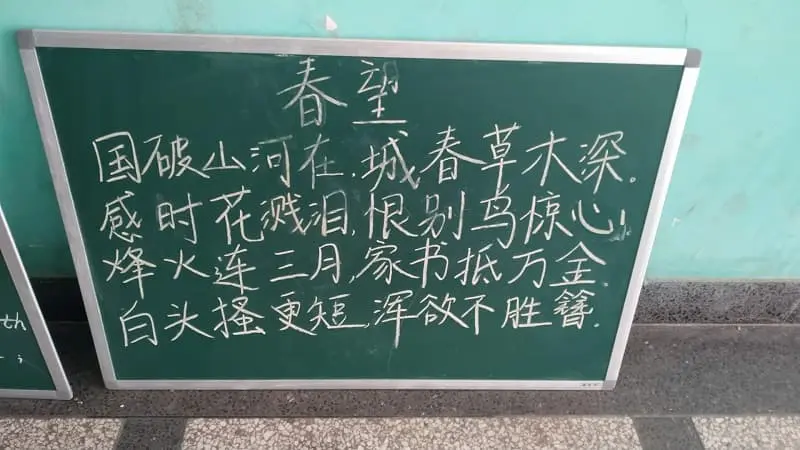 春望
国破山河在,城春草木深。
感时花溅泪,恨别鸟惊心
烽火连三月,家书抵万金.
白头搔更短,浑欲不胜簪.
th